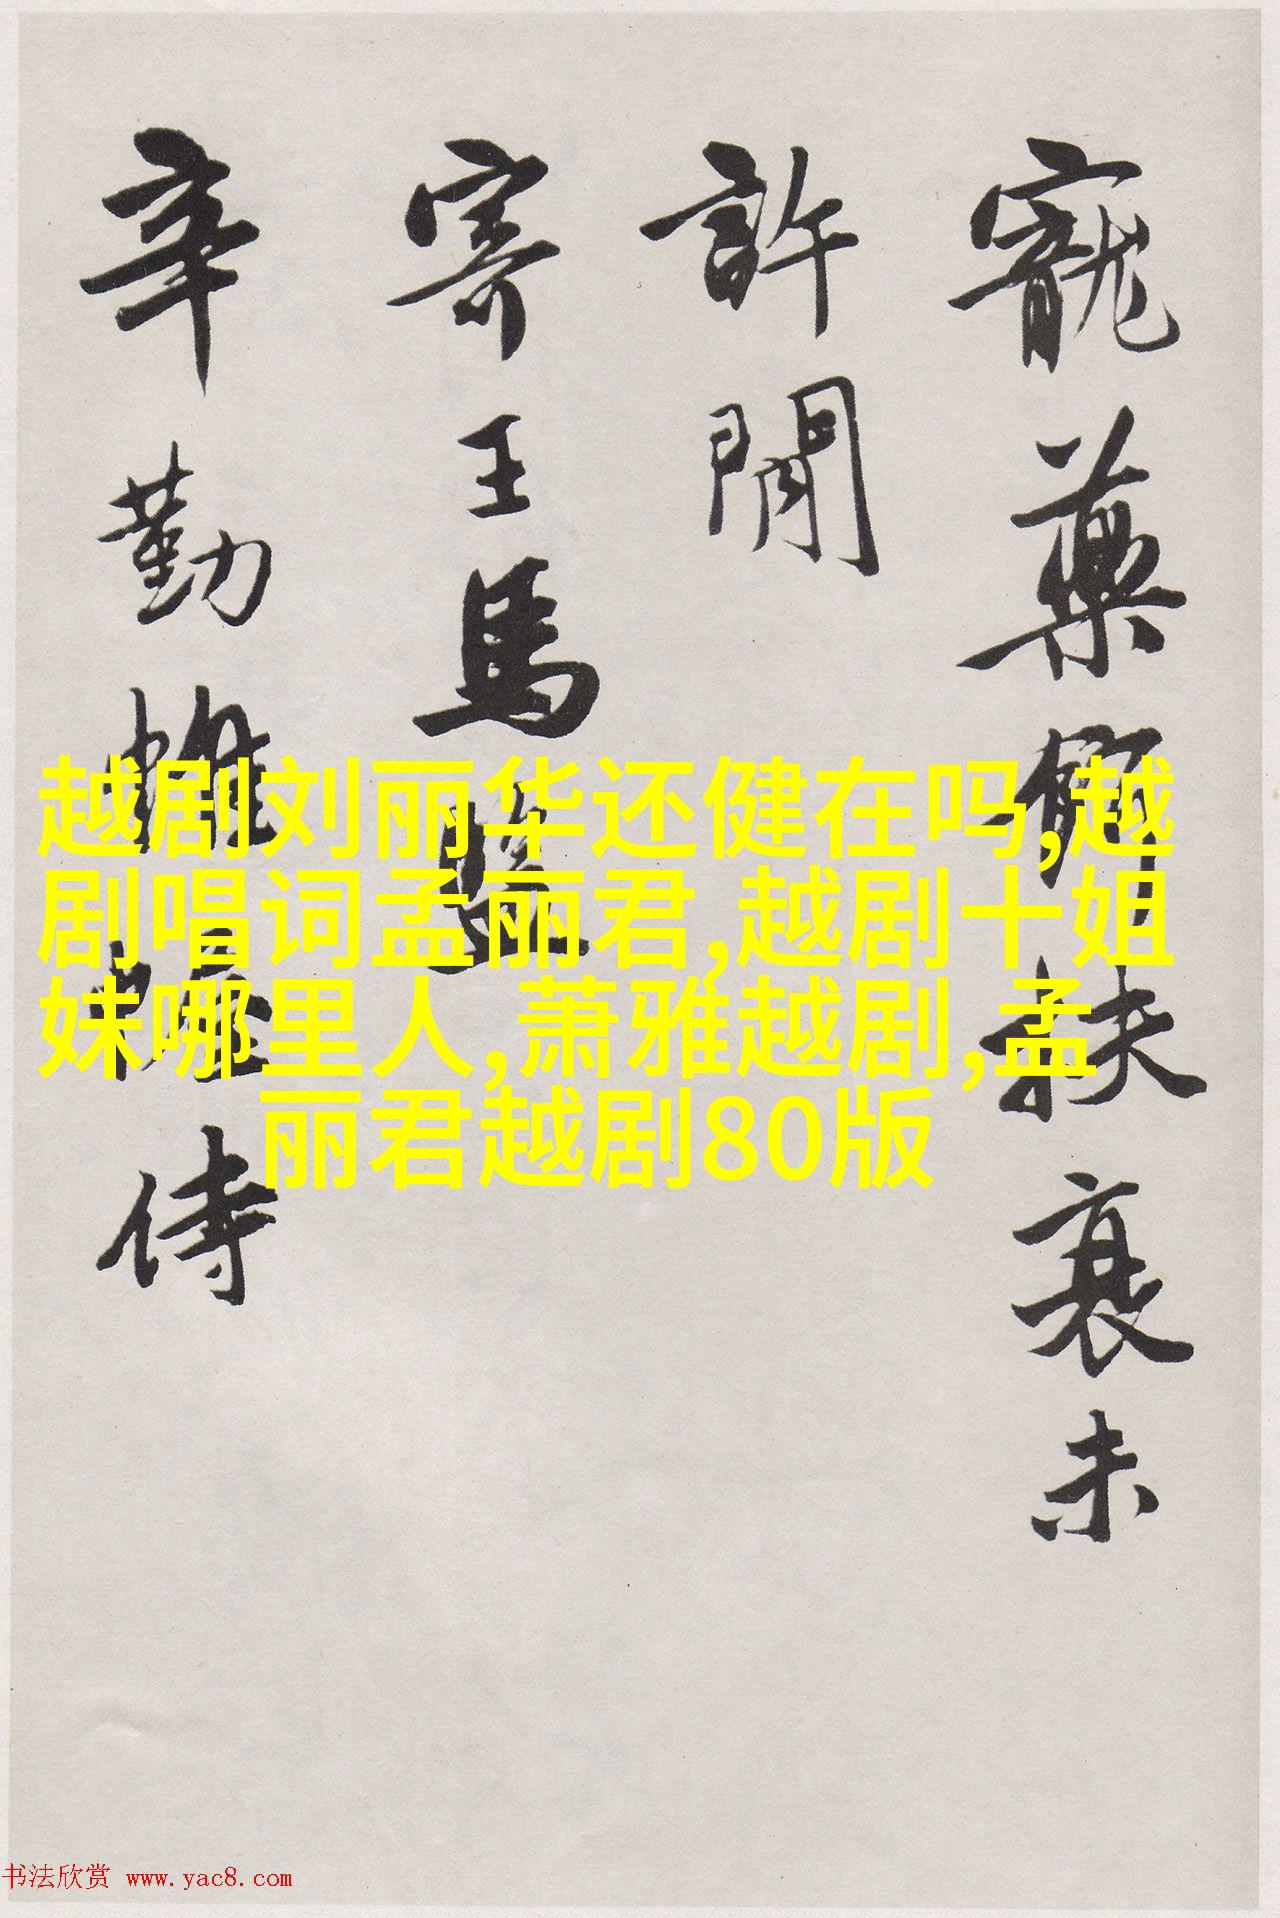 寵藥扶衰未
許閒
寄王馬監
辛勤帷幄侍
越剧刘丽华还健在吗,越
剧唱词孟丽君,越剧十姐
妹哪里人,萧雅越剧,孟
丽君越剧80版
书法欣赏 www.yac8.com